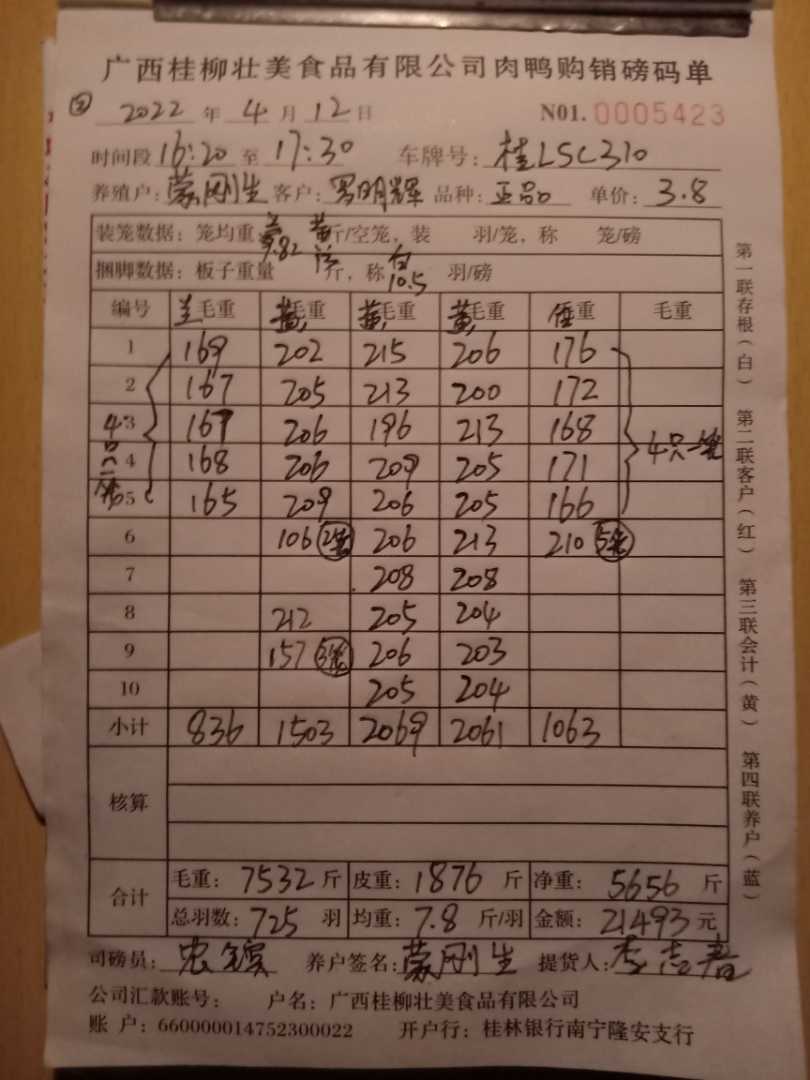 广西桂柳壮美食品有限公司肉鸭购销磅码单
② 2022 年 4 月 12 日 N01. 0005423
时间段 16:20 至 17:30 车牌号: 桂LSC310
养殖户: 蒙刚生 客户: 罗明辉 品种: 正品 单价: 3.8
装笼数据: 笼均重 9.82 黄 斤/空笼, 装 羽/笼, 称 笼/磅
捆脚数据: 板子重量 斤, 称 10.5 羽/磅
编号 兰毛重 黄毛重 黄毛重 黄毛重 重 毛重
1 169 202 215 206 176
2 167 205 213 200 172
3 167 206 196 213 168
4 168 206 209 205 171
5 165 209 206 205 166
4只一笼
4只一笼
6 106 2笼 206 213 210 5笼
7 208 208
8 212 205 204
9 157 3笼 206 203
10 205 204
小计 836 1503 2069 2061 1063
核算
合计 毛重: 7532 斤 皮重: 1876 斤 净重: 5656 斤
总羽数: 725 羽 均重: 7.8 斤/羽 金额: 21493 元
司磅员: 养户签名: 蒙刚生 提货人:
公司汇款账号: 户名: 广西桂柳壮美食品有限公司
账 户: 660000014752300022 开户行: 桂林银行南宁隆安支行
第一联存根(白) 第二联客户(红) 第三联会计(黄) 第四联养户(蓝)